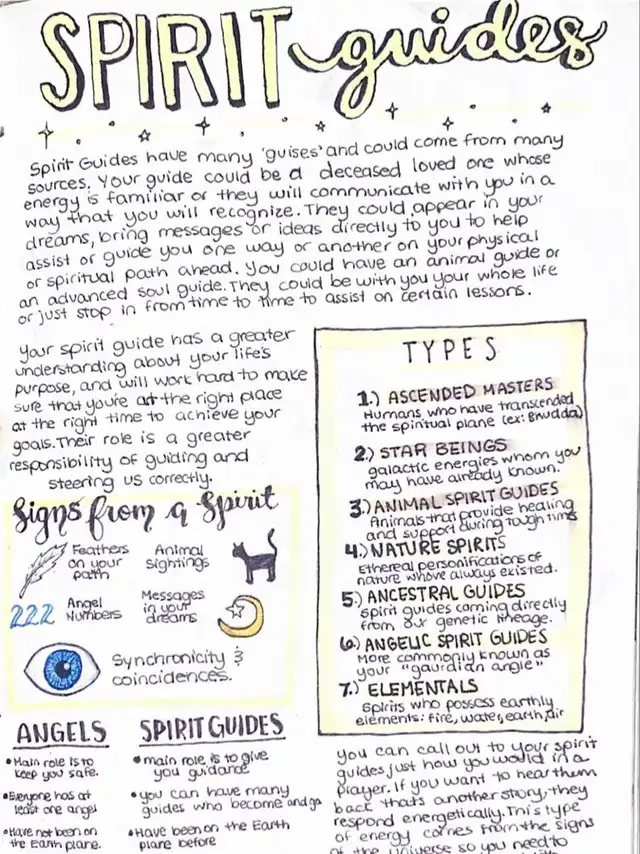 SPIRIT guides
Spirit Guides have many 'guises' and could come from many
sources. Your guide could be a deceased loved one whose
energy is familiar or they will communicate with you in a
way that you will recognize. They could appear in your
dreams, bring messages or ideas directly to you to help
assist or guide you one way or another on your physical
or spiritual path ahead. You could have an animal guide or
an advanced soul guide. They could be with you your whole life
or just stop in from time to time to assist on certain lessons.
Your spirit guide has a greater
understanding about your life's
purpose, and will work hard to make
sure that you're at the right place
at the right time to achieve your
goals. Their role is a greater
responsibility of guiding and
steering us correctly.
Signs from a Spirit
Feathers
on your
path
Animal
sightings
222
Angel
Numbers
Messages
in your
dreams
Synchronicity &
coincidences.
TYPES
1.) ASCENDED MASTERS
Humans who have transcended
the spiritual plane (ex: Bhudda)
2.) STAR BEINGS
galactic energies whom you
may have already known.
3.) ANIMAL SPIRIT GUIDES
Animals that provide healing
and support during tough times
4.) NATURE SPIRITS
Ethereal personifications of
nature whove always existed.
5.) ANCESTRAL GUIDES
Spirit guides coming directly
from our genetic lineage.
6.) ANGELIC SPIRIT GUIDES
More commonly known as
your "gaurdian angle"
7.) ELEMENTALS
Spirits who possess earthly
elements: fire, water, earth, air
ANGELS
• Main role is to
keep you safe.
• Everyone has at
least one angel
• Have not been on
the Earth plane.
SPIRIT GUIDES
• main role is to give
you guidance
• you can have many
guides who become and go
• Have been on the Earth
plane before
you can call out to your spirit
guides just how you would in a
prayer. If you want to hear them
back thats another story, they
respond energetically. This type
of energy comes from the signs
of the Universe so you need to